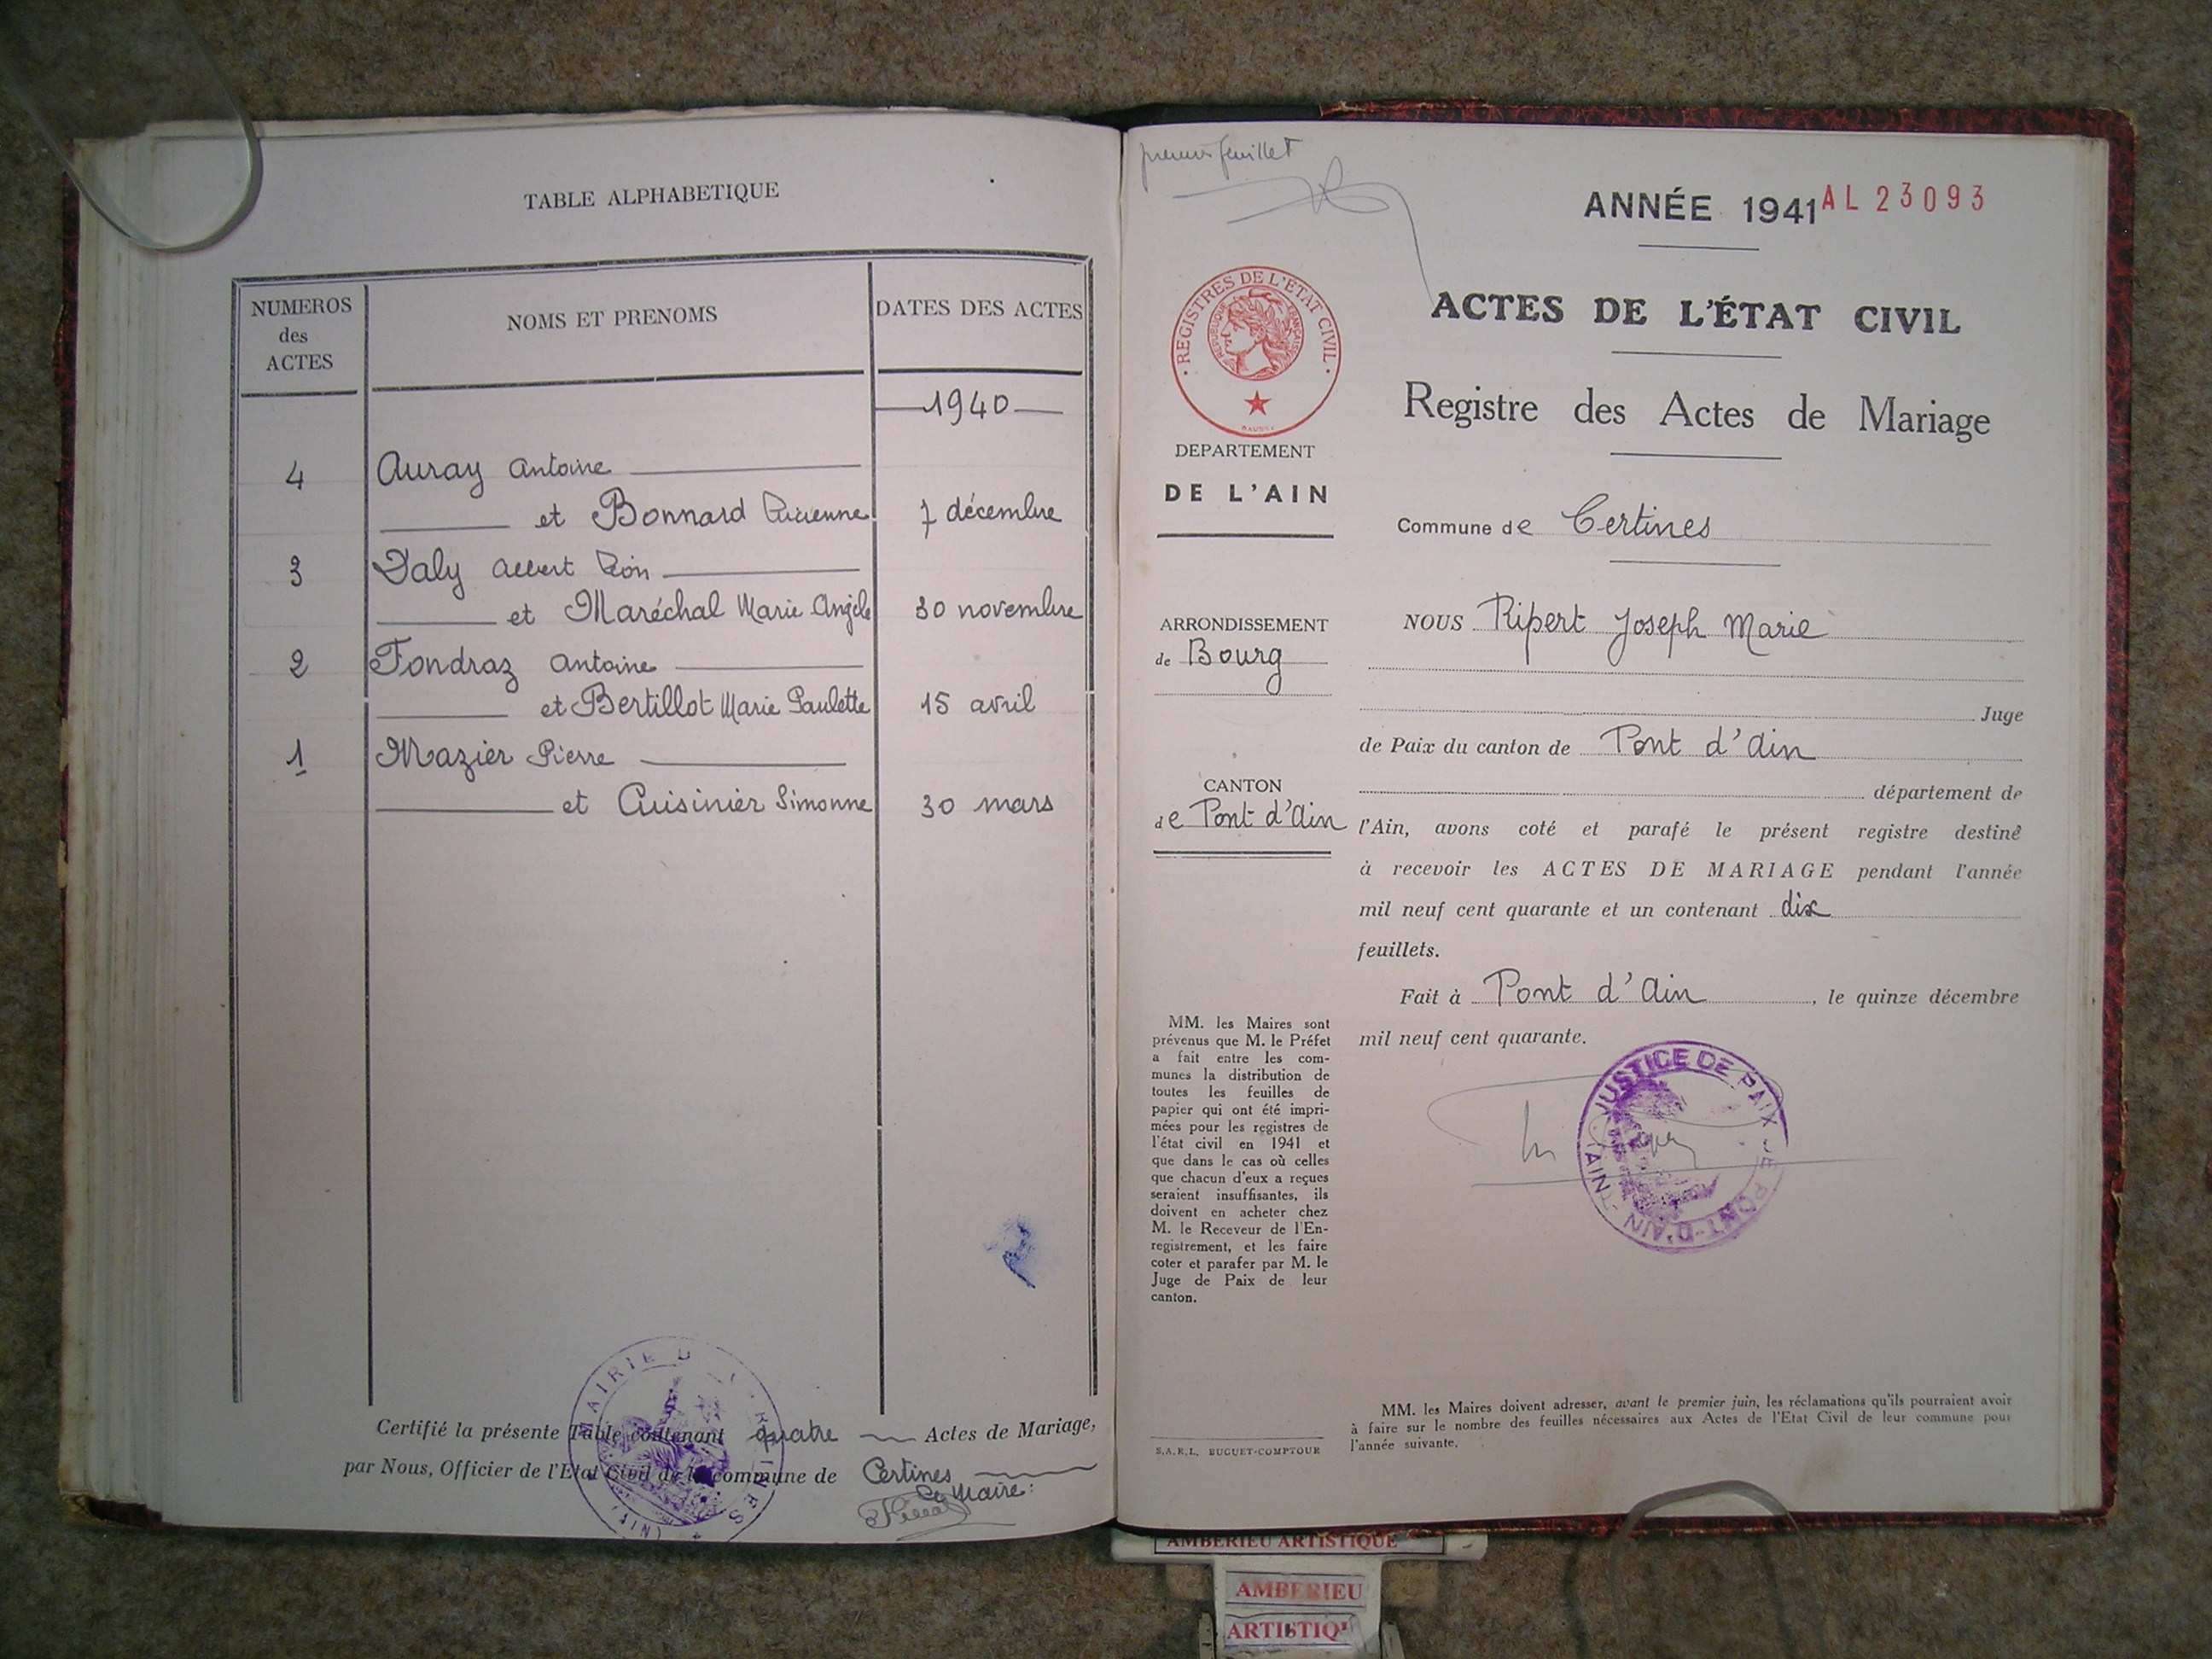 TABLE ALPHABETIQUE
NUMEROS
des
ACTES
NOMS ET PRENOMS
DATES DES ACTES
1940
4 Auray Antoine
et Bonnard Lucienne 7 décembre
3 Daly Albert Léon
et Maréchal Marie Angèle 30 novembre
2 Fondraz Antoine
et Bertillot Marie Paulette 15 avril
1 Mazier Pierre
et Cuisinier Simonne 30 mars
Certifié la présente Table contenant quatre Actes de Mariage,
par Nous, Officier de l'Etat Civil de la commune de Certines
Le Maire:
MAIRIE D
premier feuillet
ANNÉE 1941 AL 23093
REGISTRES DE L'ETAT CIVIL
REPUBLIQUE FRANÇAISE
ACTES DE L'ÉTAT CIVIL
Registre des Actes de Mariage
DEPARTEMENT
DE L'AIN
Commune de Certines
ARRONDISSEMENT
de Bourg
CANTON
de Pont d'Ain
NOUS Ripert Joseph Marie
Juge
de Paix du canton de Pont d'Ain
département de
l'Ain, avons coté et parafé le présent registre destiné
à recevoir les ACTES DE MARIAGE pendant l'année
mil neuf cent quarante et un contenant dix
feuillets.
Fait à Pont d'Ain, le quinze décembre
mil neuf cent quarante.
JUSTICE DE PAIX DE PONT-D'AIN (AIN)
MM. les Maires sont
prévenus que M. le Préfet
a fait entre les com-
munes la distribution de
toutes les feuilles de
papier qui ont été impri-
mées pour les registres de
l'état civil en 1941 et
que dans le cas où celles
que chacun d'eux a reçues
seraient insuffisantes, ils
doivent en acheter chez
M. le Receveur de l'En-
registrement, et les faire
coter et parafer par M. le
Juge de Paix de leur
canton.
S.A.R.L. BUGUET-COMPTOUR
MM. les Maires doivent adresser, avant le premier juin, les réclamations qu'ils pourraient avoir
à faire sur le nombre des feuilles nécessaires aux Actes de l'Etat Civil de leur commune pour
l'année suivante.
AMBERIEU ARTISTIQUE
AMBERIEU
ARTISTIQ